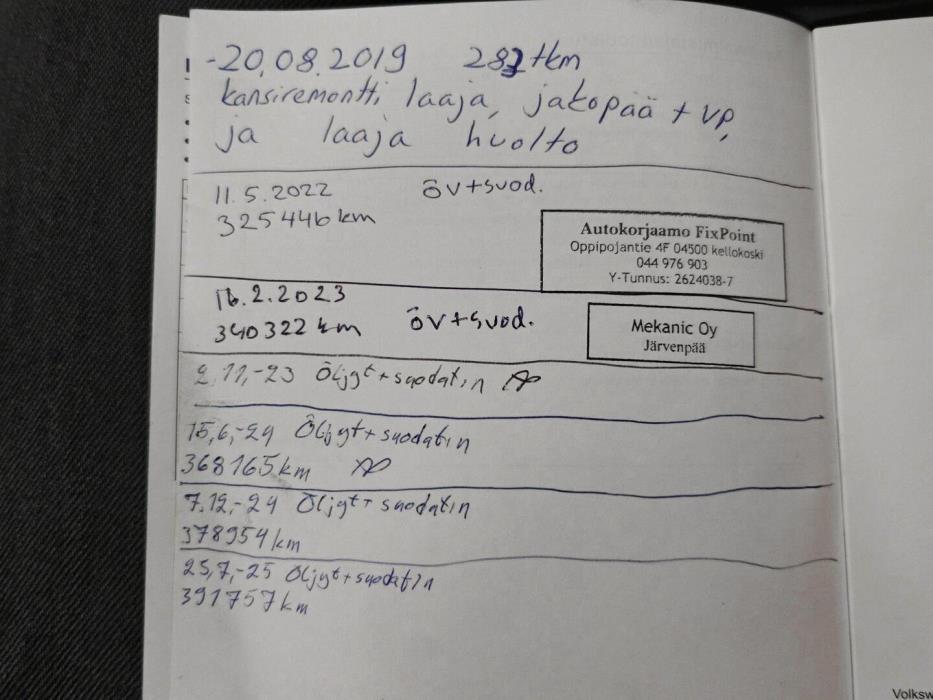 -20.08.2019 282 tkm
kansiremontti laaja, jakopää + VP,
ja laaja huolto
11.5.2022 öv+suod.
325446 km
Autokorjaamo FixPoint
Oppipojantie 4F 04500 kellokoski
044 976 903
Y-Tunnus: 2624038-7
16.2.2023
340322 km öv+suod.
Mekanic Oy
Järvenpää
2,11,-23 Öljyt+suodatin
15,6,-24 Öljyt+suodatin
368165km
7.12,-24 Öljyt+suodatin
378954km
25,7,-25 Öljyt+suodatin
391757km
Volksw